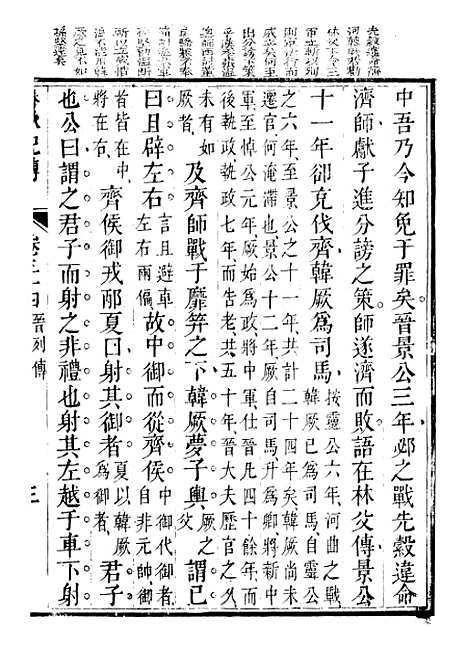 先縠違命濟
林父下令三
威立矣何至
出分謗之策
中吾乃今知免于罪矣晉景公三年邲之戰先縠違命
濟師獻子進分謗之策師遂濟而敗語在林父傳景公
十一年卻克伐齊韓厥爲司馬按靈公六年河曲之戰韓厥已爲司馬自靈公
之六年至景公之十一年共計二十四年矣韓厥尚未遷官何淹滯也景公十二年厥自司馬升爲卿將新中
軍至悼公元年厥始爲政將中軍仕晉凡四十餘年而後執政執政七年而告老共五十年晉大夫歷官之久
未有如厥者及齊師戰于靡笄之下韓厥夢子輿厥之父謂已
曰且辟左右言且避車左右兩偏故中御而從齊侯中御代御者自非元帥御
者皆在中將在右齊侯御戎邴夏曰射其御者夏以韓厥爲御者君子
也公曰謂之君子而射之非禮也射其左越于車下射
春秋紀傳 卷三十四晉列傳 三